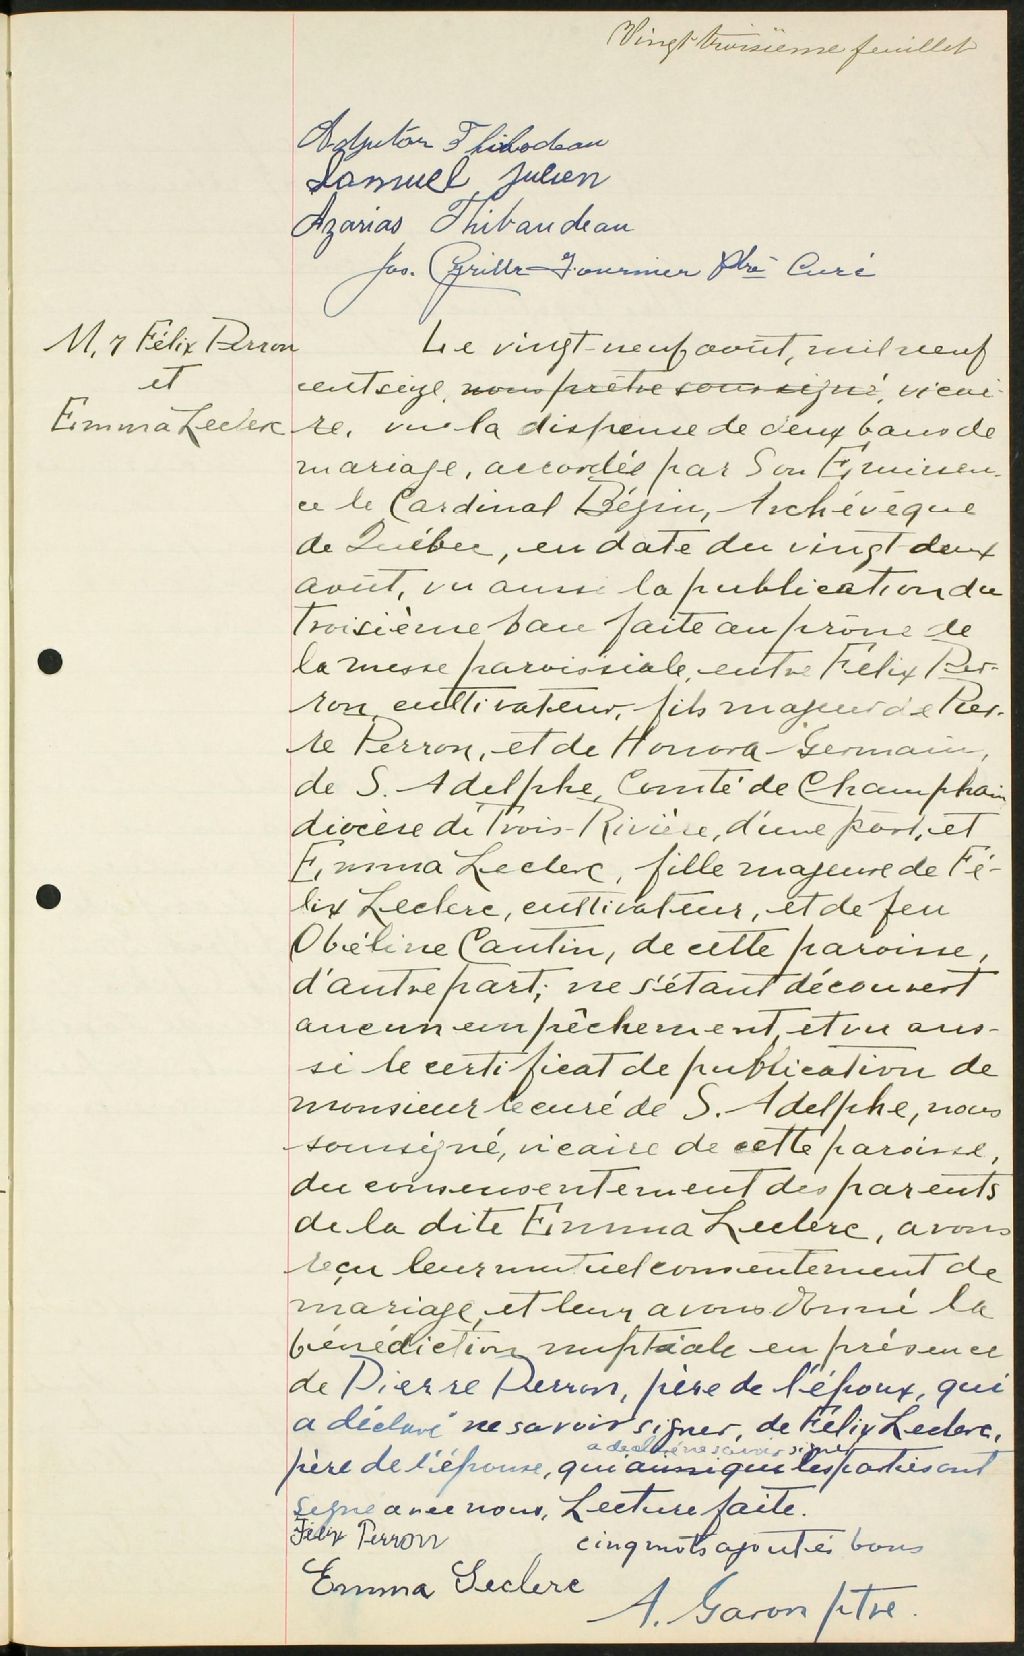 Vingt troisième feuillet
Adjutor Thibodeau
Samuel Julien
Azarias Thibaudeau
Jos. Cyrille Fournier Ptre Curé
M. 7 Félix Perron
et
Emma Leclerc
Le vingt-neuf août, mil neuf
cent seize, nous prêtre soussigné, vicai-
re, vu la dispense de deux bans de
mariage, accordés par Son Eminen-
ce le Cardinal Bégin, Archévêque
de Québec, en date du vingt-deux
août, vu aussi la publication du
troisième ban faite au prône de
la messe paroissiale, entre Félix Per-
ron, cultivateur, fils majeur de Pier-
re Perron, et de Honora Germain,
de S. Adelphe, Comté de Champlain
diocèse de Trois-Rivière, d'une part, et
Emma Leclerc, fille majeure de Fé-
lix Leclerc, cultivateur, et de feu
Obéline Cantin, de cette paroisse,
d'autre part; ne s'étant découvert
aucun empêchement, et vu aus-
si le certificat de publication de
monsieur le curé de S. Adelphe, nous
soussigné, vicaire de cette paroisse,
du consensentement des parents
de la dite Emma Leclerc, avons
reçu leur mutuel consentement de
mariage, et leur avons donné la
bénédiction nuptiale en présence
de Pierre Perron, père de l'époux, qui
a déclaré ne savoir signer, de Félix Leclerc,
a déclaré ne savoir signer
père de l'épouse, qui ainsi que les parties ont
signé avec nous, Lecture faite.
Félix Perron
cinq mots ajoutés bons
Emma Leclerc
A. Garon ptre.